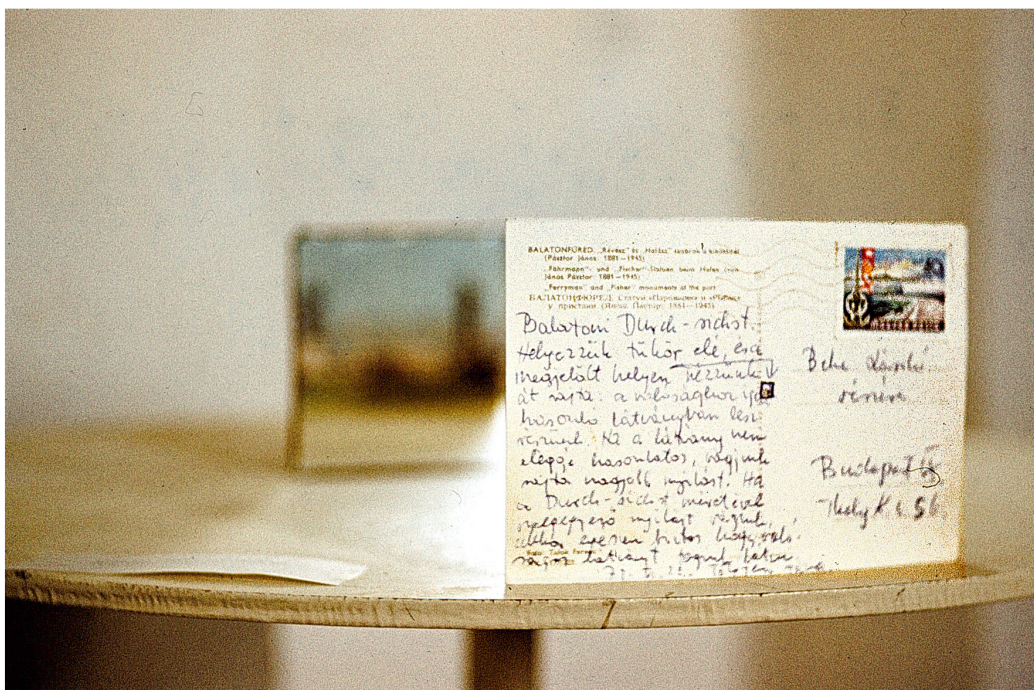 BALATONFÜRED. „Révész" és „Halász" szobrok a kikötőnél
(Pásztor János 1881—1945)
„Fährmann" und „Fischer"-Statuen beim Hafen (von
János Pásztor 1881—1945)
„Ferryman" and „Fisher" monuments at the port
БАЛАТОНФЮРЕД. Статуи «Паромщик» и «Рыбак»
у пристани (Янош Пастор: 1881—1945)
Balatoni Durch-sichst.
Helyezzük tükör elé, és a
megjelölt helyen nézzünk
át rajta: a valósághoz
hasonló látványban lesz
részünk. Ha a látvány nem
eléggé hasonlatos, vágjunk
rajta nagyobb nyílást. Ha
a Durch-sichst méretével
megegyező nyílást vágunk,
akkor egészen biztos hogy való-
látványt fogunk látni
Beke László
részére
Budapest
Thaly K. u. 56